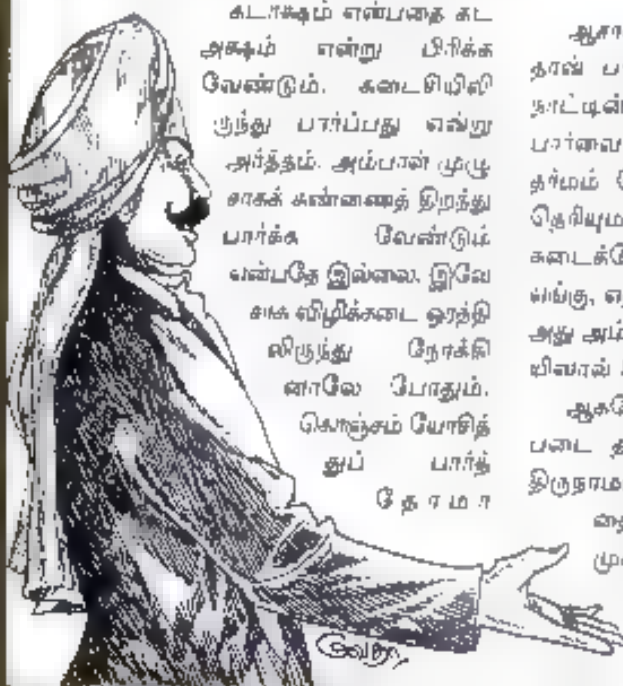 கடாக்ஷம் என்பதை கட
அக்ஷம் என்று பிரிக்க
வேண்டும். கடைசியிலி
ருந்து பார்ப்பது என்று
அர்த்தம். அம்பாள் முழு
சாகக் கண்ணைத் திறந்து
பார்க்க வேண்டும்
என்பதே இல்லை. இலே
சாக விழிக்கடை ஓரத்தி
லிருந்து நோக்கி
னாலே போதும்.
கொஞ்சம் யோசித்
துப் பார்த்
தோமா
தான் ப
நாட்டின்
பார்வை
தர்மம்
தெரியும
கடைக்
அது அம்
படை
திருநாம
வேதா